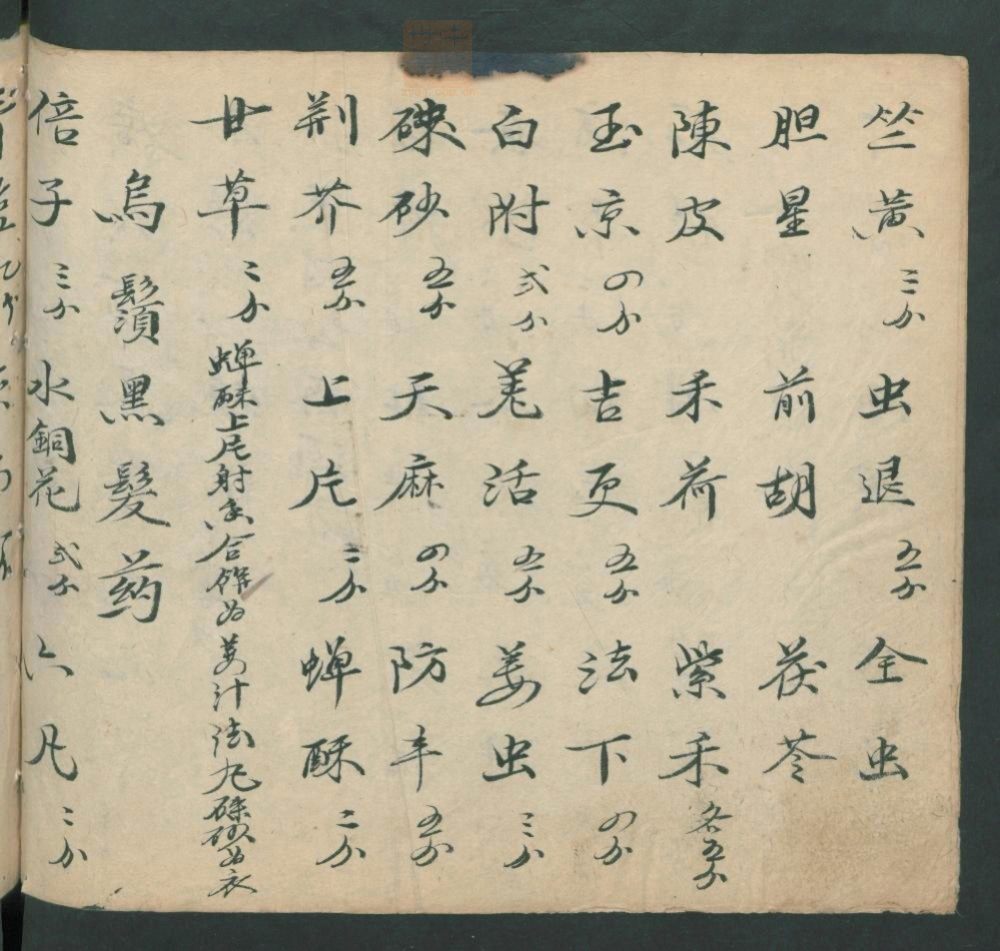 竺黃三分 虫退五分 全虫
胆星 前胡 茯苓
陳皮 禾荷 紫禾各五分
玉京四分 吉更五分 法下四分
白附弍分 羌活五分 姜虫三分
硃砂五分 天麻四分 防丰五分
荆芥五分 上片二分 蝉酥二分
甘草二分 蝉酥上片射香合碎为姜汁法丸硃砂为衣
烏鬚黑髮药
倍子三分 水銅花弍分 六凡二分